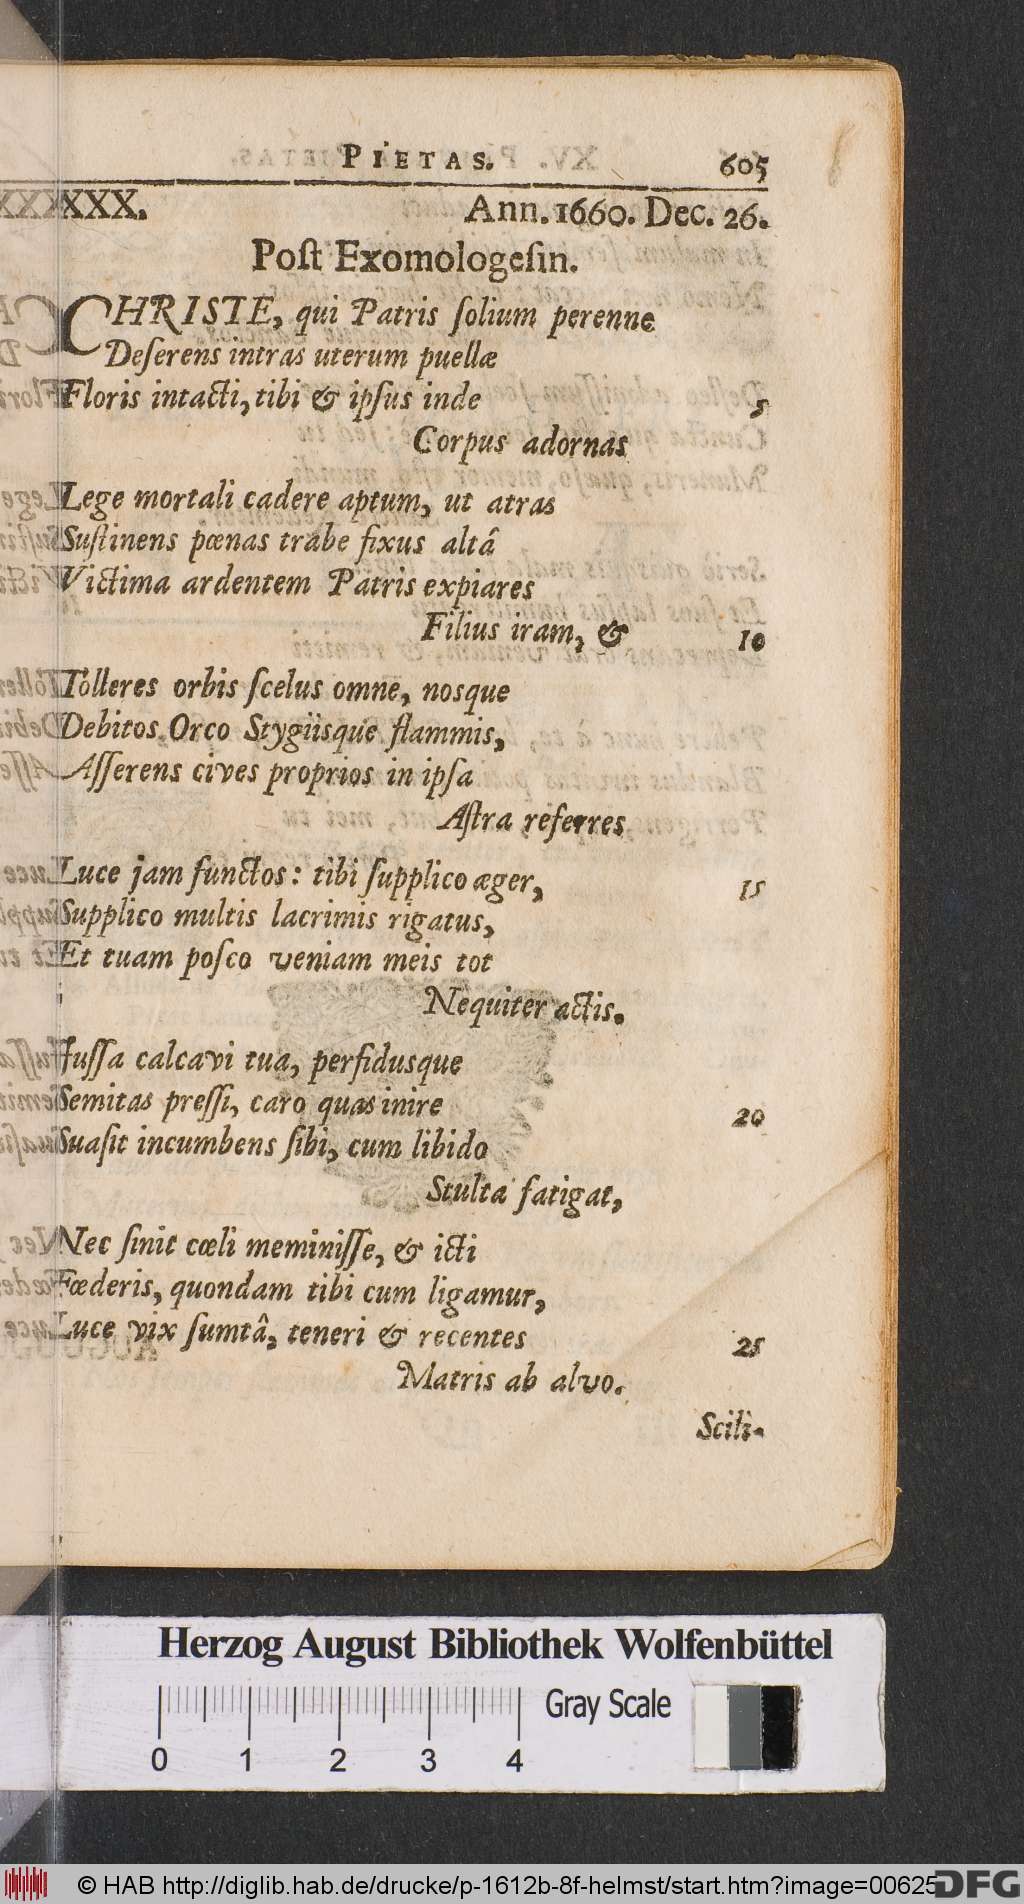 PIETAS. 605
XXX. Ann. 1660. Dec. 26.
Poſt Exomologeſin.
CHRISTE, qui Patris ſolium perenne
Deſerens intras uterum puellæ
Floris intacti, tibi & ipſus inde 5
Corpus adornas
Lege mortali cadere aptum, ut atras
Suſtinens pœnas trabe fixus altâ
Victima ardentem Patris expiares
Filius iram, & 10
Tolleres orbis ſcelus omne, nosque
Debitos Orco Stygiisque flammis,
Aſſerens cives proprios in ipſa
Aſtra referres
Luce jam functos: tibi ſupplico æger, 15
Supplico multis lacrimis rigatus,
Et tuam poſco veniam meis tot
Nequiter actis.
Juſſa calcavi tua, perfidusque
Semitas preſſi, caro quas inire 20
Suaſit incumbens ſibi, cum libido
Stulta fatigat,
Nec ſinit cœli meminiſſe, & icti
Fœderis, quondam tibi cum ligamur,
Luce vix ſumtâ, teneri & recentes 25
Matris ab alvo.
Scili-
Herzog August Bibliothek Wolfenbüttel
Gray Scale
0 1 2 3 4
© HAB http://diglib.hab.de/drucke/p-1612b-8f-helmst/start.htm?image=00625
DFG